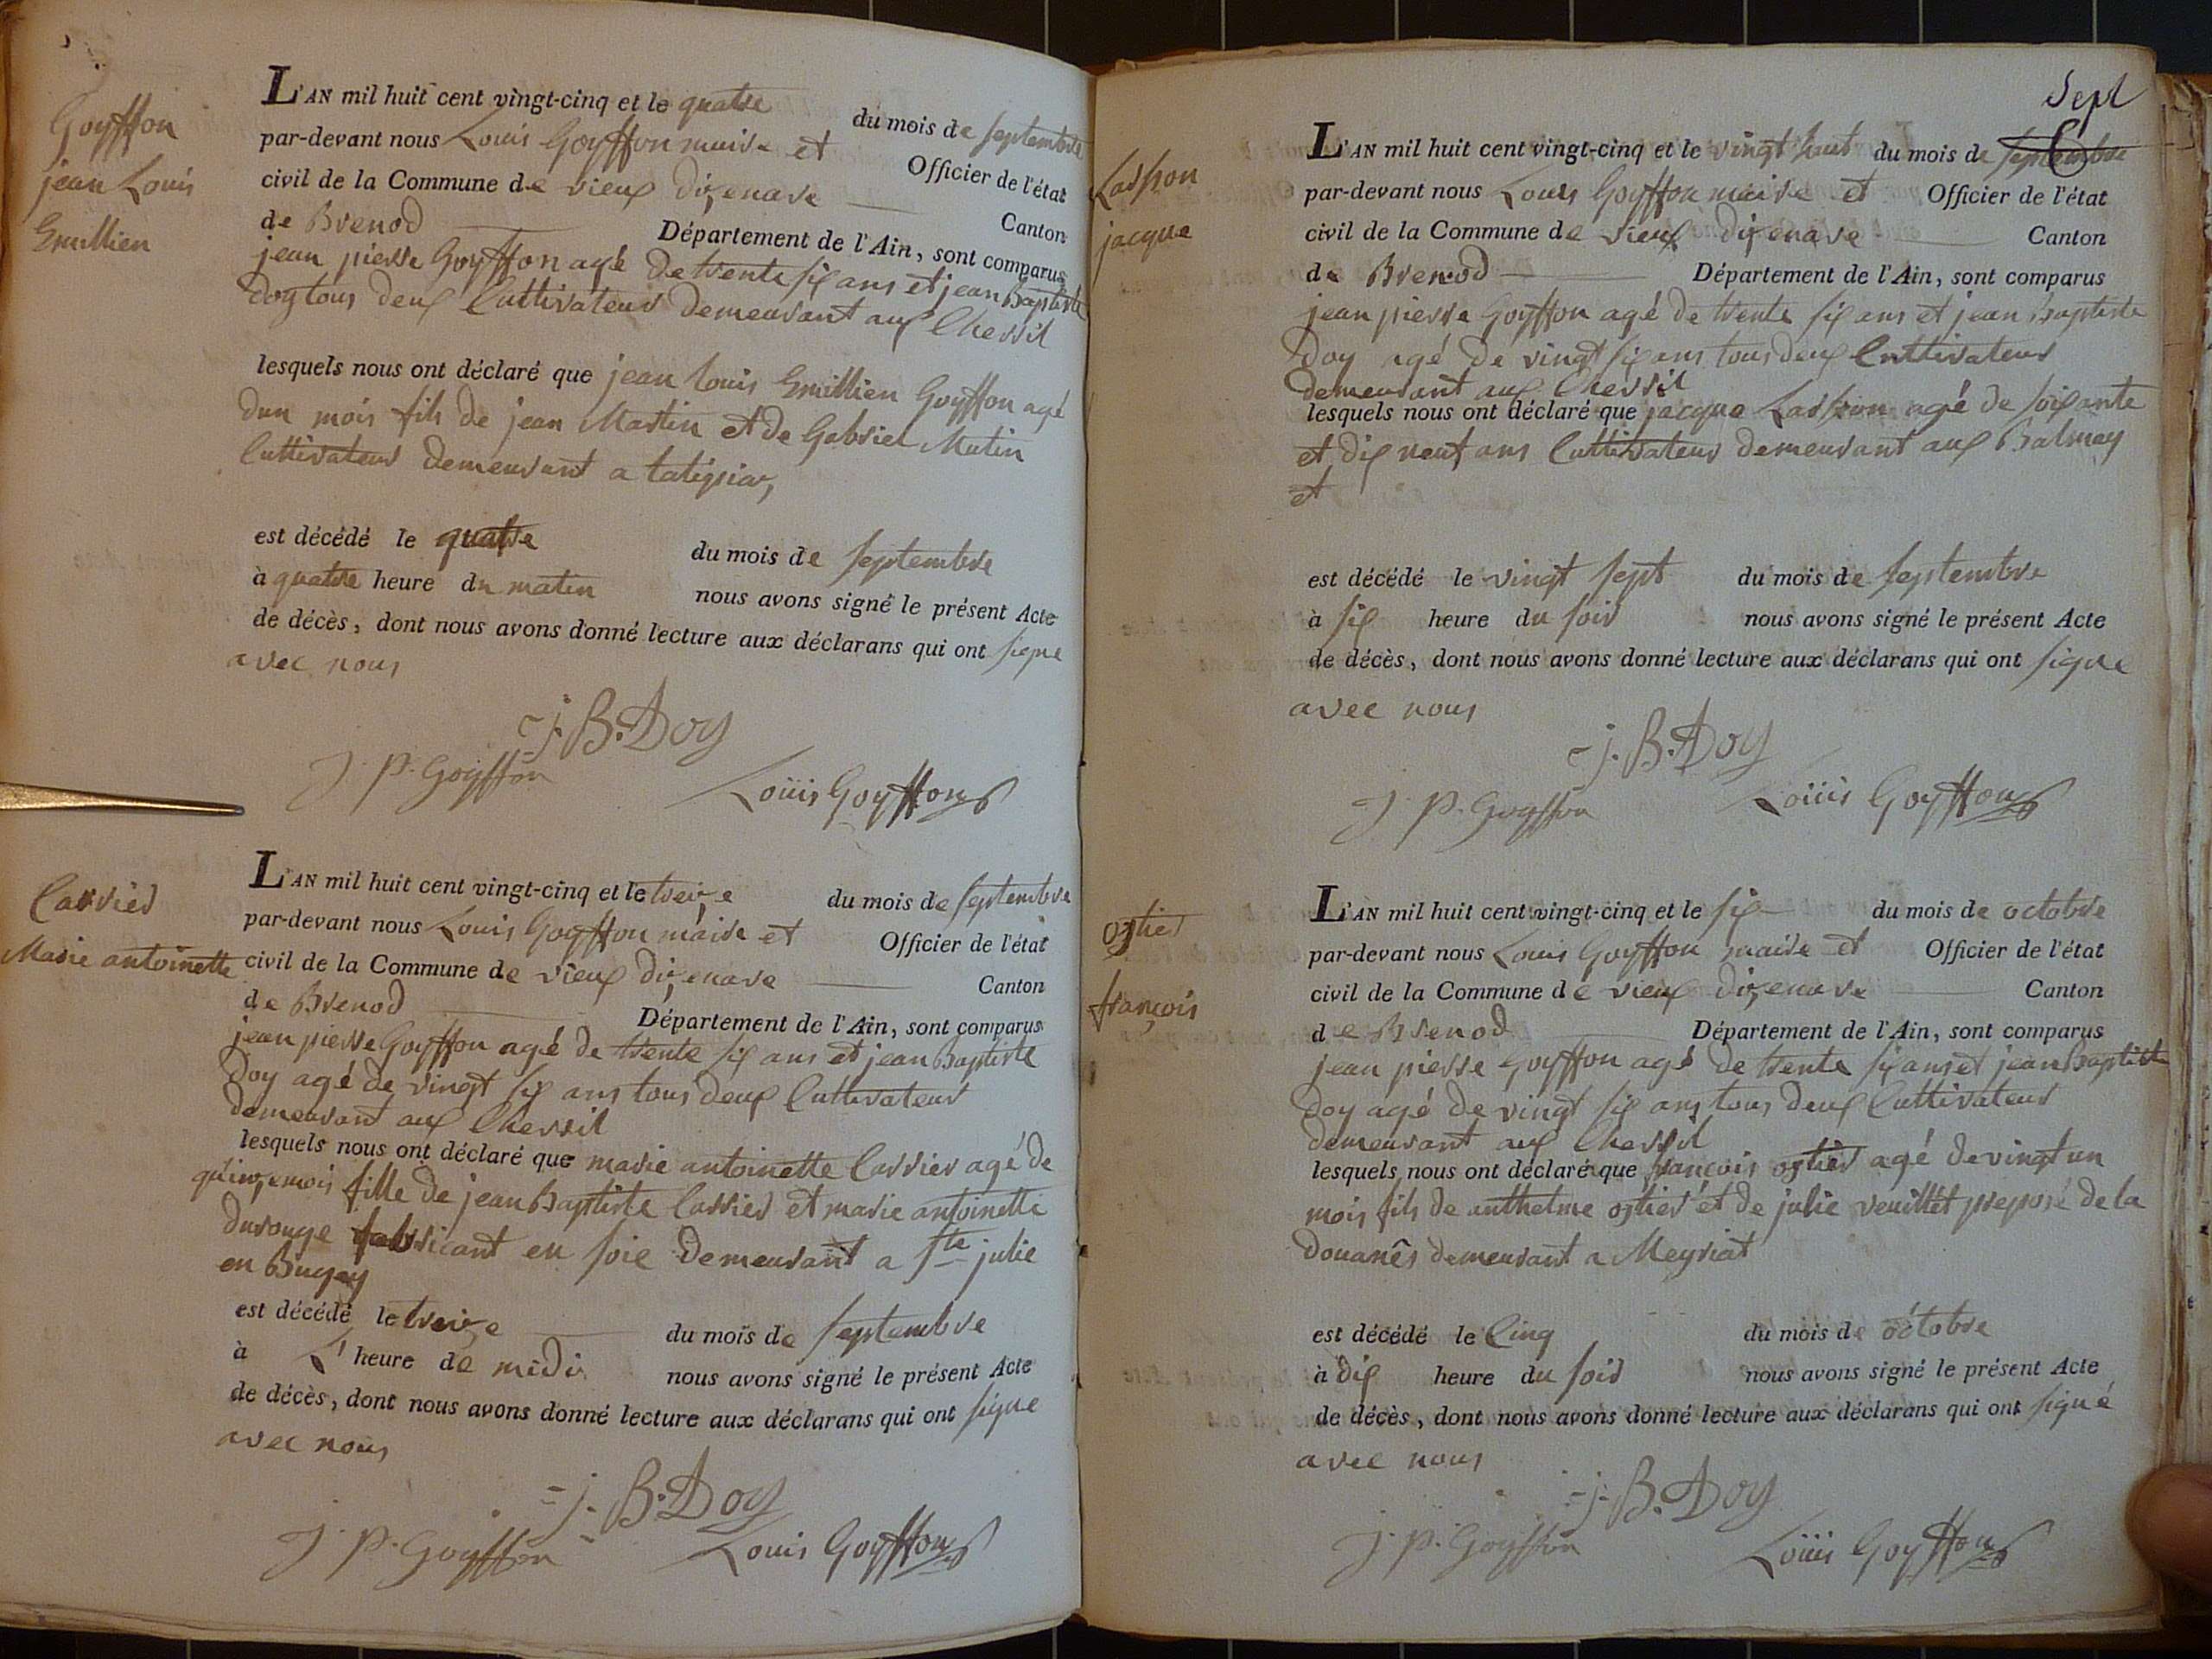 Goyffon
jean Louis
Emillien
L'AN mil huit cent vingt-cinq et le quatre du mois de septembre
par-devant nous Louis Goyffon maire et Officier de l'état
civil de la Commune de vieux dizenave Canton
de Brenod Département de l'Ain, sont comparus
jean pierre Goyffon agé de trente six ans et jean Baptiste
doy tous deux Cultivateur demeurant aux Chevril
lesquels nous ont déclaré que jean louis Emillien Goyffon agé
dun mois fils de jean Martin et de Gabriel Mutin
Cultivateur demeurant a
est décédé le quatre du mois de septembre
à quatre heure du matin nous avons signé le présent Acte
de décès, dont nous avons donné lecture aux déclarans qui ont signe
avec nous
j. B. Doy
J. P. Goyffon Loüis Goyffon
Carrier
Marie antoinette
L'AN mil huit cent vingt-cinq et le treize du mois de septembre
par-devant nous Louis Goyffon maire et Officier de l'état
civil de la Commune de vieux dizenave Canton
de Brenod Département de l'Ain, sont comparus
jean pierre Goyffon agé de trente six ans et jean Baptiste
doy agé de vingt six ans tous deux Cultivateur
demeurant aux Chevril
lesquels nous ont déclaré que marie antoinette Carrier agé de
quinze mois fille de jean Baptiste Carrier et marie antoinette
durouge fabricant en soie demeurant a Ste julie
en Bugey
est décédé le treize du mois de septembre
à L' heure de midi nous avons signé le présent Acte
de décès, dont nous avons donné lecture aux déclarans qui ont signe
avec nous
j. B. Doy
J. P. Goyffon Louis Goyffon
Sept
Laspon
jacque
L'AN mil huit cent vingt-cinq et le vingt huit du mois de septembre
par-devant nous Louis Goyffon maire et Officier de l'état
civil de la Commune de vieux dizenave Canton
de Brenod Département de l'Ain, sont comparus
jean pierre Goyffon agé de trente six ans et jean Baptiste
doy agé de vingt six ans tous deux Cultivateur
demeurant aux Chevril
lesquels nous ont déclaré que jacque Laspon agé de soixante
et dix neuf ans Cultivateur demeurant aux Balmay
et
est décédé le vingt sept du mois de septembre
à six heure du soir nous avons signé le présent Acte
de décès, dont nous avons donné lecture aux déclarans qui ont signe
avec nous
j. B. Doy
J. P. Goyffon Loüis Goyffon
ostier
françois
L'AN mil huit cent vingt-cinq et le six du mois de octobre
par-devant nous Louis Goyffon maire et Officier de l'état
civil de la Commune de vieux dizenave Canton
de Brenod Département de l'Ain, sont comparus
jean pierre Goyffon agé de trente six ans et jean Baptiste
doy agé de vingt six ans tous deux Cultivateur
demeurant aux Chevril
lesquels nous ont déclaré que françois ostier agé de vingt un
mois fils de anthelme ostier et de julie veuillet preposé de la
douanês demeurant a Meyriat
est décédé le Cinq du mois de octobre
à dix heure du soir nous avons signé le présent Acte
de décès, dont nous avons donné lecture aux déclarans qui ont signé
avec nous
j. B. Doy
J. P. Goyffon Loüis Goyffon